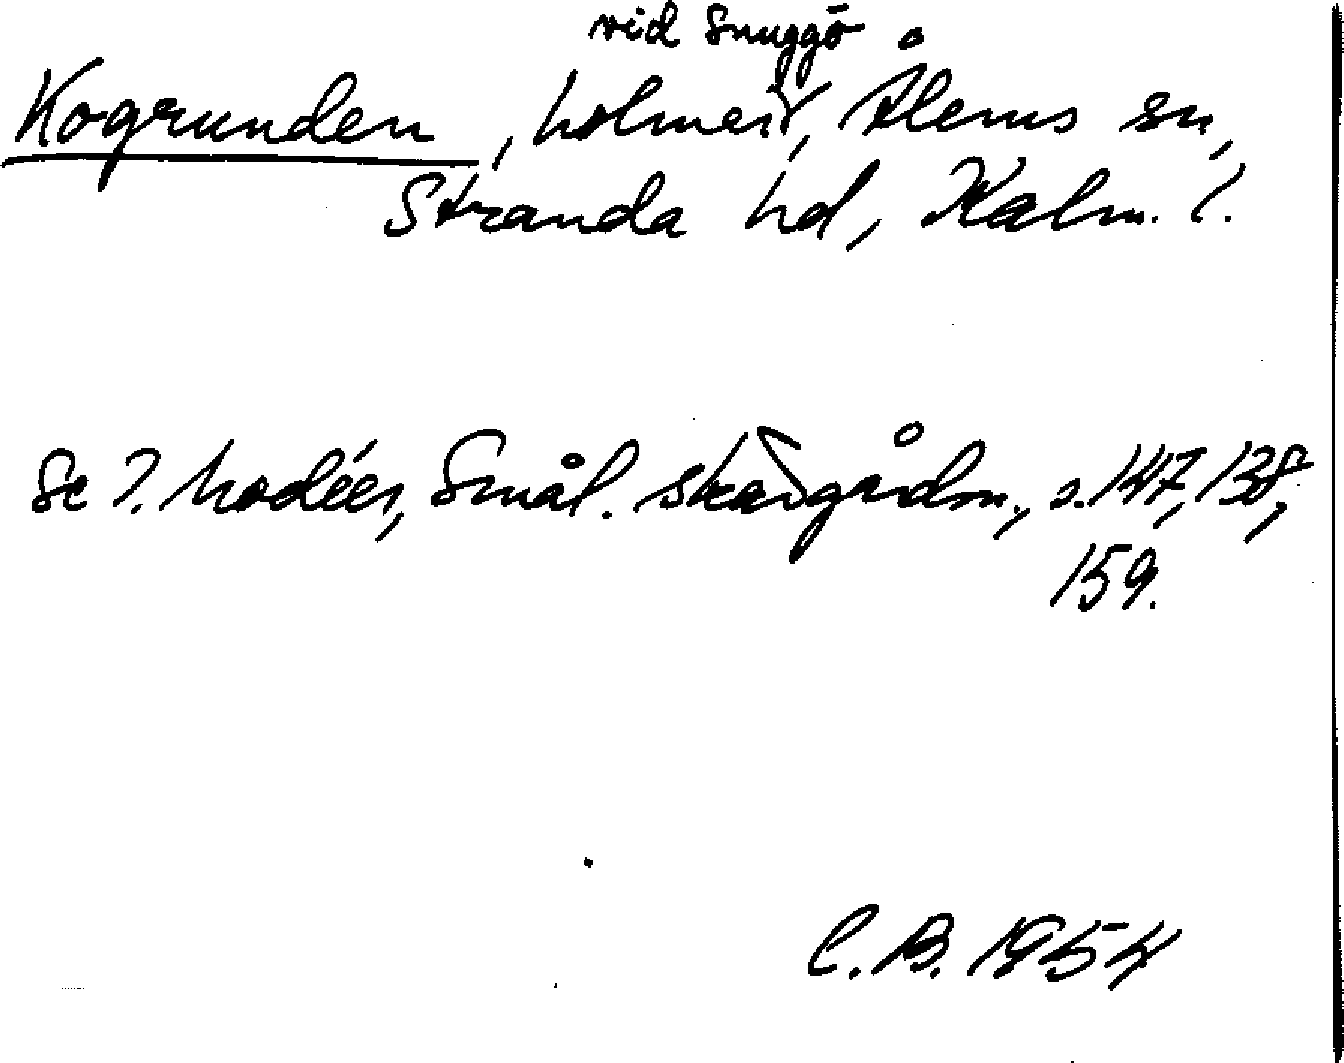 vid Snuggö
Kogrunden, holmar, Ålems sn,
Stranda hd, Kalm. l.
Se I. Modéer, Smål. skärgårdsn., s. 147, 138,
159.
C.B. 1954